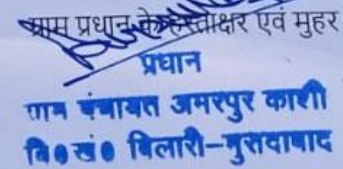 ग्राम प्रधान के हस्ताक्षर एवं मुहर
प्रधान
ग्राम पंचायत अमरपुर काशी
वि०खं० बिलारी-मुरादाबाद